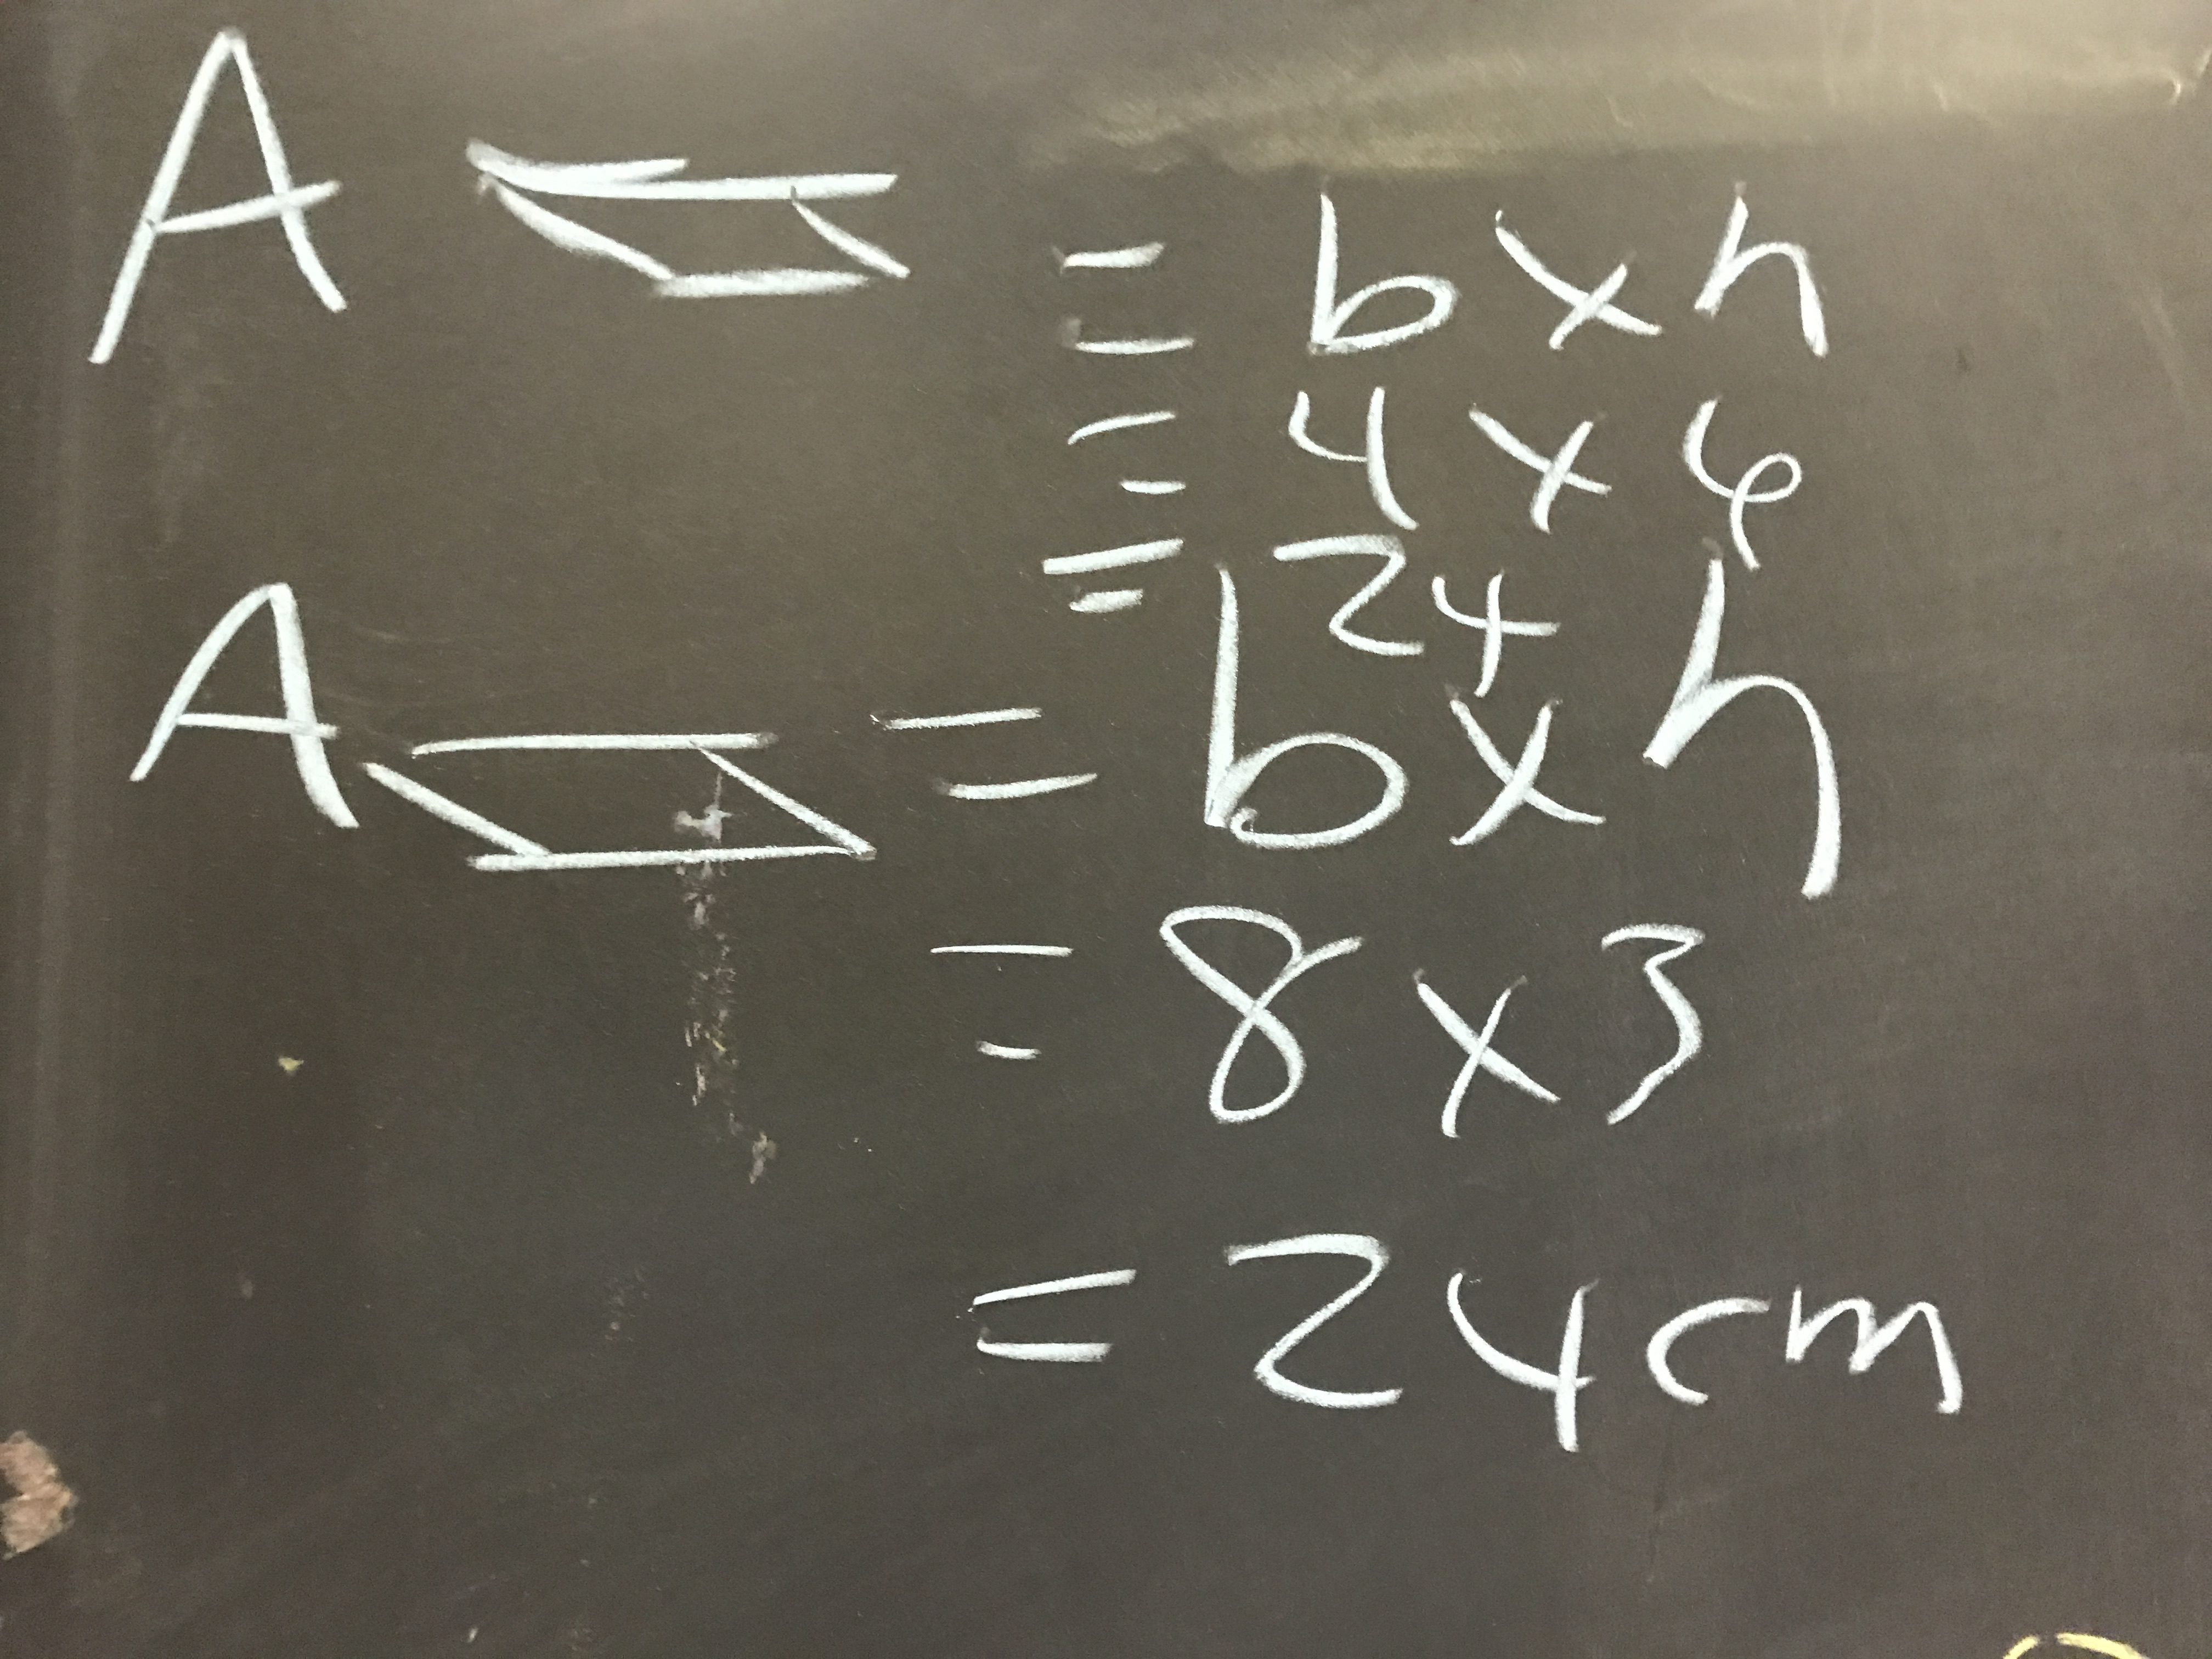 A = b x h
= 4 x 6
= 24
A = b x h
= 8 x 3
= 24cm